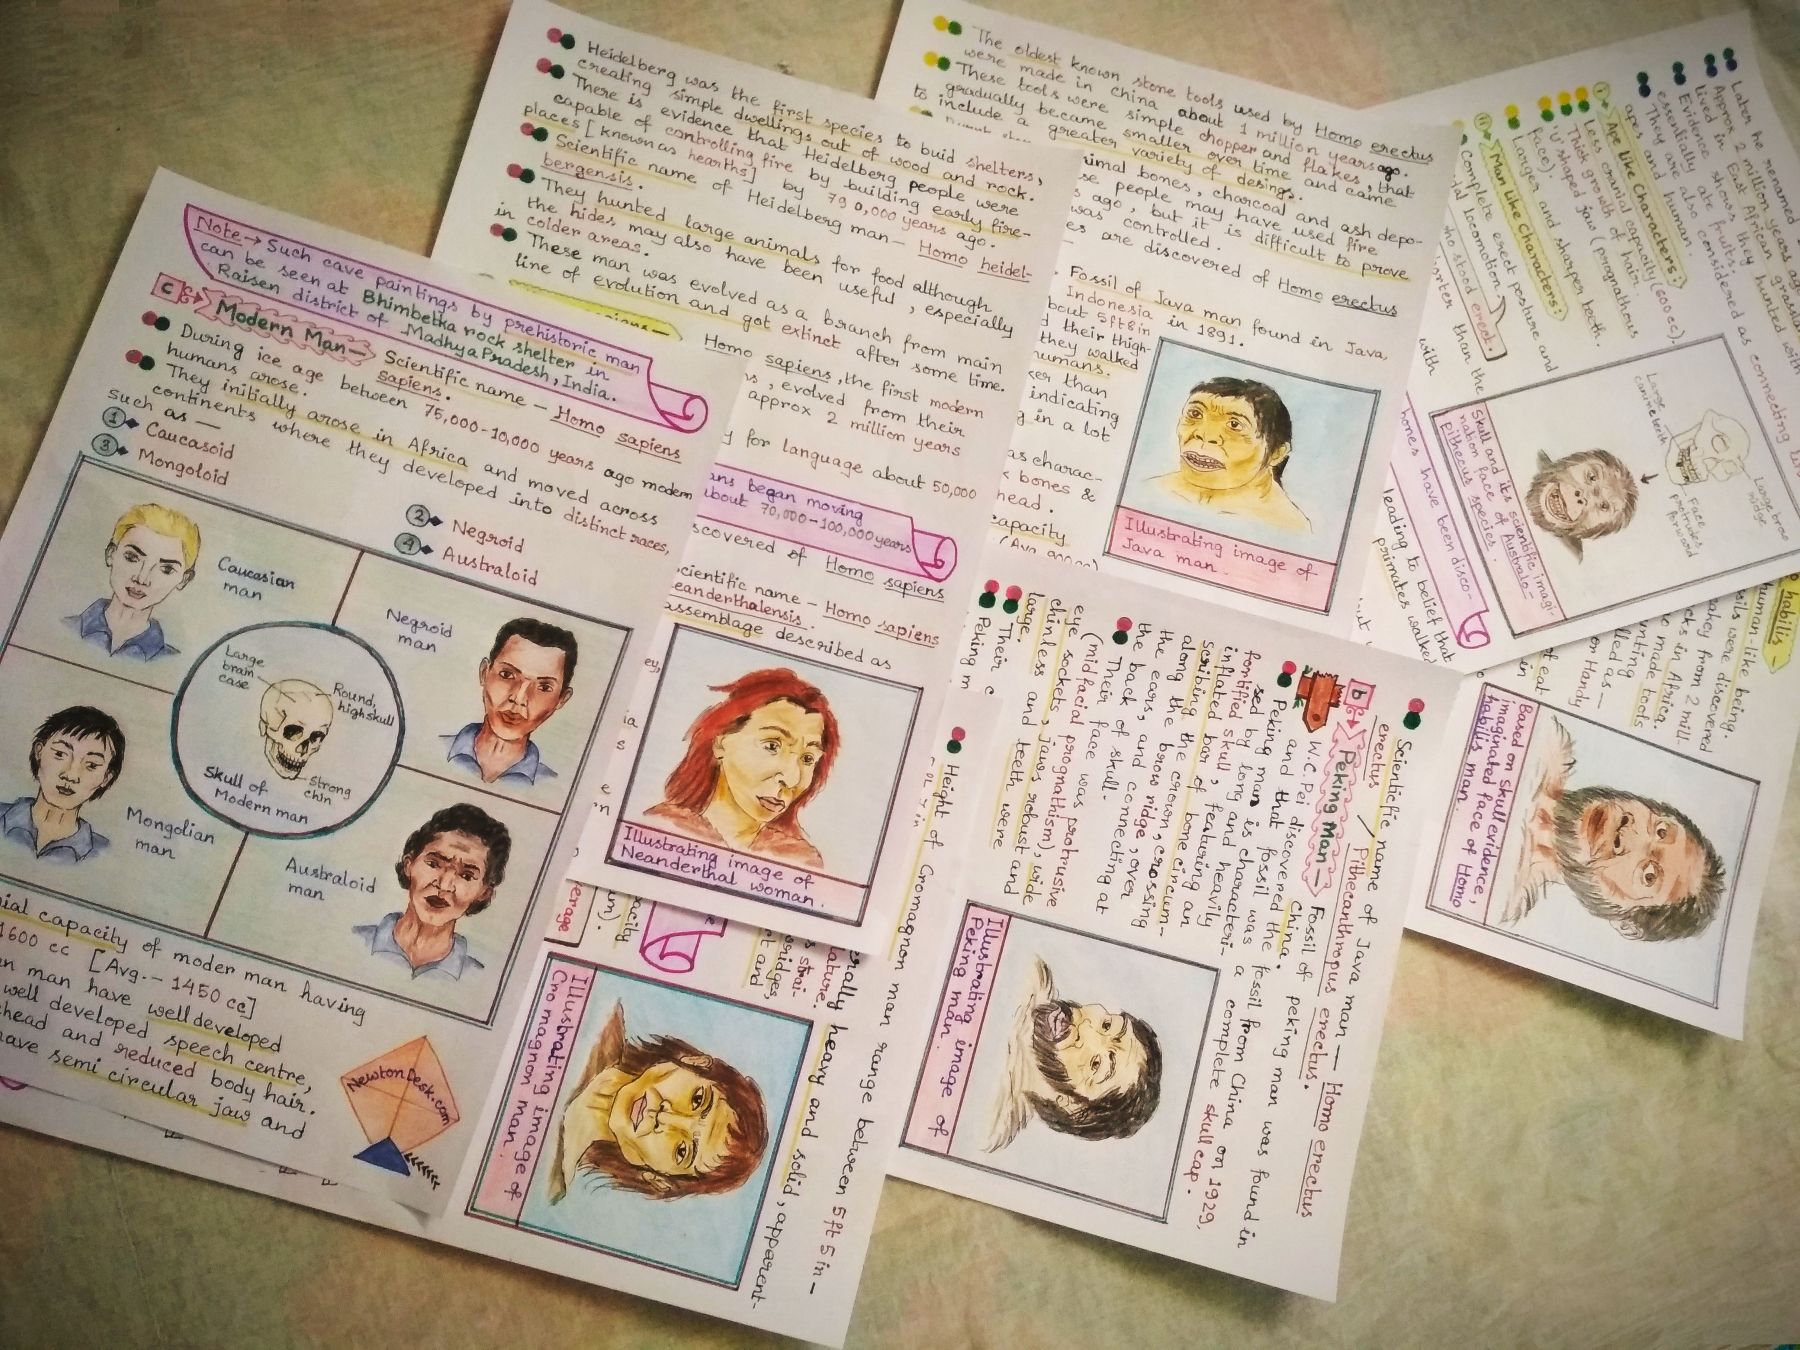 Note → Such cave paintings by prehistoric man
can be seen at Bhimbetka rock shelter in
Raisen district of Madhya Pradesh, India.
C Modern Man — Scientific name — Homo sapiens
sapiens.
During ice age between 75,000-10,000 years ago modern
humans arose.
They initially arose in Africa and moved across
continents where they developed into distinct races,
such as —
1 Caucasoid
2 Negroid
3 Mongoloid
4 Australoid
Caucasian
man
Negroid
man
Large
brain
case
Round,
high skull
strong
chin
Skull of
Modern man
Mongolian
man
Australoid
man
capacity of moder man having
1600 cc [Avg. - 1450 cc]
man have well developed
well developed speech centre,
head and reduced body hair.
have semi circular jaw and
NewtonDesk.com
Heidelberg was the first species to buid shelters,
creating simple dwellings out of wood and rock.
There is evidence that Heidelberg people were
capable of controlling fire by building early fire-
places [known as hearths] by 790,000 years ago.
Scientific name of Heidelberg man — Homo heidel-
bergensis.
They hunted large animals for food although
the hides may also have been useful, especially
in colder areas.
These man was evolved as a branch from main
line of evolution and got extinct after some time.
Homo sapiens, the first modern
, evolved from their
approx 2 million years
for language about 50,000
began moving
about 70,000-100,000 years
discovered of Homo sapiens
Scientific name — Homo sapiens
neanderthalensis.
assemblage described as
Illustrating image of
Neanderthal woman.
Height of Cromagnon man range between 5ft 5in-
heavy and solid, apparent-
Illustrating image of
Cro magnon man.
The oldest known stone tools used by Homo erectus
were made in china about 1 million years ago.
These tools were simple chopper and flakes, that
gradually became smaller over time and came
to include a greater variety of desings.
animal bones, charcoal and ash depo-
people may have used fire
ago, but it is difficult to prove
was controlled.
are discovered of Homo erectus
Fossil of Java man found in Java,
Indonesia in 1891.
about 5ft8in
their thigh-
they walked
humans.
than
indicating
in a lot
as charac-
bones &
head.
capacity
Illustrating image of
Java man.
Scientific name of Java man — Homo erectus
erectus / Pithecanthropus erectus.
b Peking Man → Fossil of peking man was found in
W.C. Pei discovered the fossil from China on 1929,
and that fossil was a complete skull cap.
Peking man is characteri-
sed by long and heavily
fortified
inflated skull, featuring an
inflated bar of bone circum-
scribing the crown, crossing
along the brow ridge, over
the ears, and connecting at
the back of skull.
Their face was protrusive
(midfacial prognathism), wide
eye sockets, jaws robust and
chinless and teeth were
large.
Their c
Peking m
Illustrating image of
Peking man.
Later he renamed
Approx 2 million years ago
lived in East African grassland
Evidence shows they hunted with
essentially ate fruits.
They are also considered as connecting link
apes and human.
i Ape like Characters:
Less cranial capacity (600cc).
Thick growth of hair.
'U' shaped jaw (prognathous
face).
Larger and sharper teeth.
ii Man like Characters:
Complete erect posture and
locomotion
who stood erect.
shorter than the
with
bones have been disco-
leading to belief that
primates walked
Large
canine teeth
Large brow
ridge
Face
protrudes
forword
Skull and it's scientific imagi-
nation face of Australo-
pithecus species.
habilis —
human-like being.
fossils were discovered
Leakey from 2 mill-
rocks in Africa.
made tools
hunting
called as —
or Handy
Based on skull evidence,
imaginated face of Homo
habilis man.